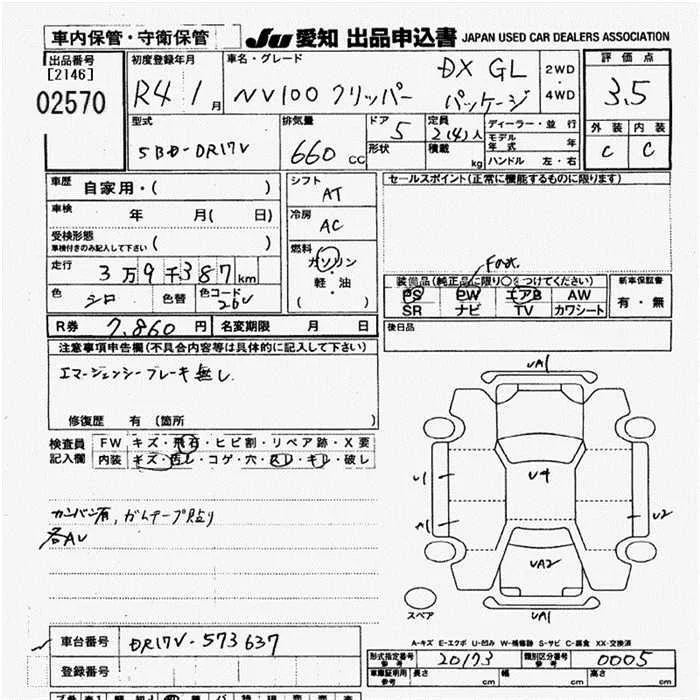 車内保管・守衛保管
JU 愛知 出品申込書 JAPAN USED CAR DEALERS ASSOCIATION
出品番号
[2146]
02570
初度登録年月
R4 1月
車名・グレード
NV100クリッパー DX GL パッケージ
2WD・4WD
評価点
3.5
外装 内装
C C
型式
5BD-DR17V
排気量
660 CC
ドア
5
形状
定員
2(4)人
積載 kg
ディーラー・並行
モデル年式 年
ハンドル 左・右
車歴 自家用・( )
車検 年 月( 日)
受検形態
車検付きのみ記入して下さい ( )
走行 3万9千387km
色 シロ 色替 色コード 26V
シフト
AT
冷房
AC
燃料
ガソリン・軽・油
( )
セールスポイント(正常に機能するものに限ります)
装備品(純正品に限り○をつけてください)
PS PW エアB AW
SR ナビ TV カワシート
新車保証書
有・無
後日品
R券 7,860円 名変期限 月 日
注意事項申告欄(不具合内容等は具体的に記入して下さい)
エマージェンシーブレーキ無し
修復歴 有 (箇所 )
検査員記入欄
FW キズ・飛石・ヒビ割・リペア跡・X要
内装 キズ・汚レ・コゲ・穴・スレ・キレ・破レ
カンバン有,ガムテープ貼り
各AU
UA1
U1
U4
A1
U2
UA2
UA1
スペア
A-キズ E-エクボ U-凹み W-補修跡 S-サビ C-腐食 XX-交換済
車台番号 DR17V-573637
登録番号
形式指定番号 参考 20173
類別区分番号 参考 0005
車庫証明用 参考 長さ cm 幅 cm 高さ cm